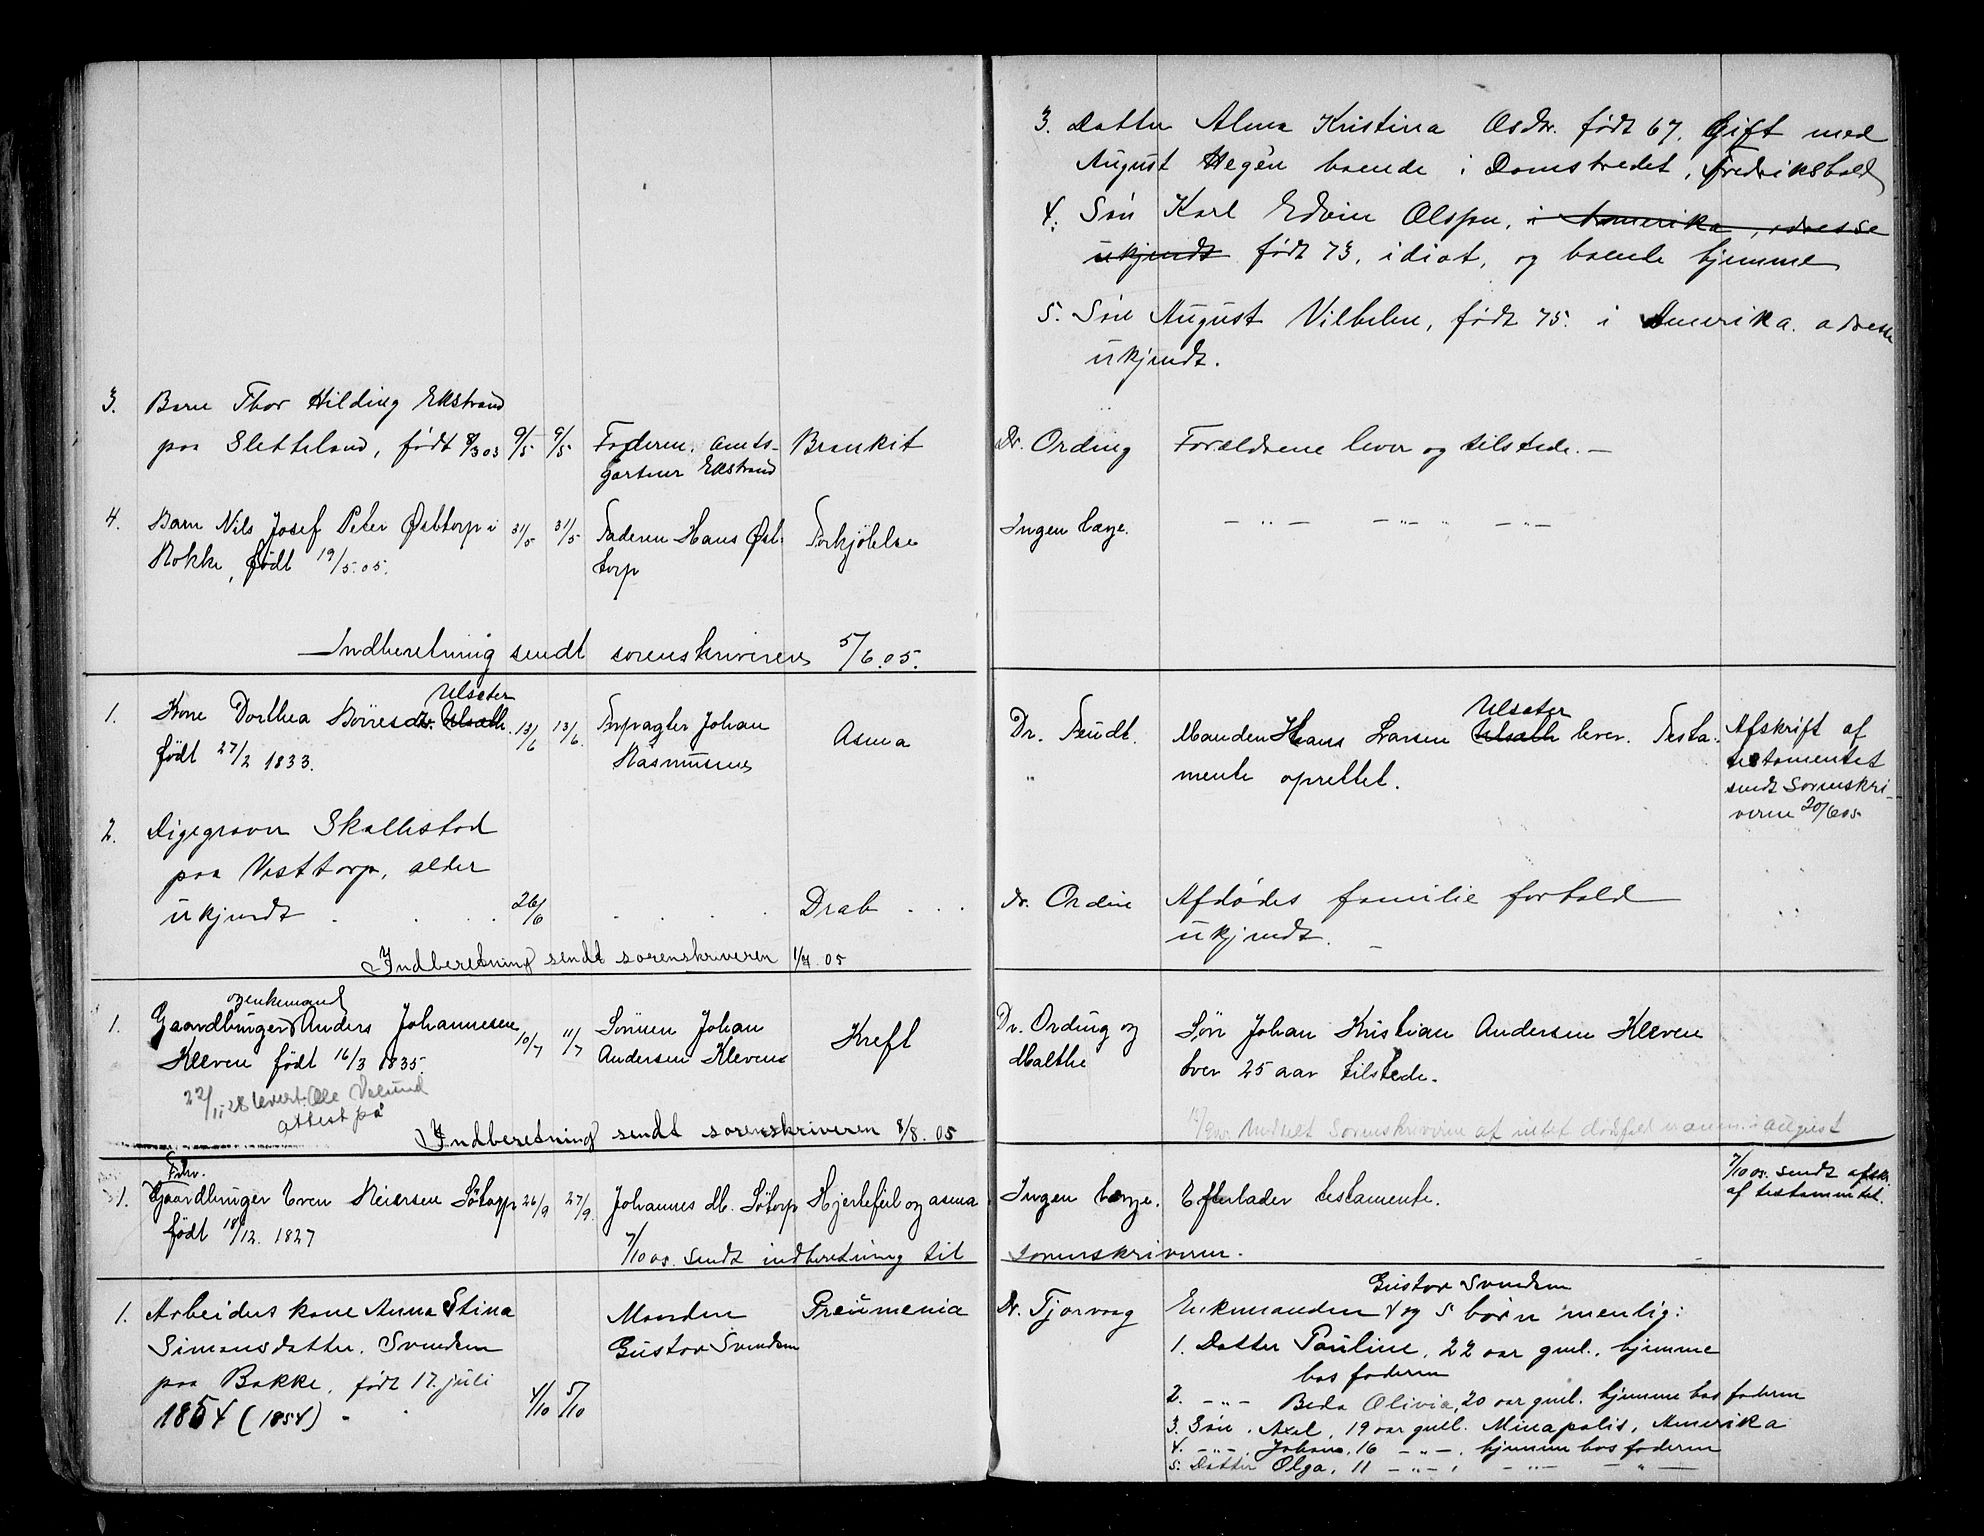 3. Datter Alma Kristina Olsdtr. født 67. Gift med
August Hegén boende i Damstredet, Fredrikshald
4. Søn Karl Edvin Olsson, i Amerika, adresse
ukjendt født 73, idiot, og boende hjemme
5. Søn August Vilhelm, født 75. i Amerika. adresse
ukjendt.
3. Barn Thor Hilding Ekstrand
paa Sletteland, født 8/3 03 9/5 9/5 Faderen, amts- Bronkit Dr. Ording Forældrene lever og tilstede. —
gartner Ekstrand
4. Barn Nils Josef Peter Østtorp i 31/5 31/5 Faderen Hans Øst- Forkjölelse Ingen læge. — " — — " — " — " —
Rokke, født 19/5.05. torp
Indberetning sendt sorenskriveren 5/6.05.
Ulsæter Ulsæter
1. Kone Dorthea Börresdtr. 13/6 13/6. Forpagter Johan Asma Dr. Feudt. Manden Hans Larsen lever. Testa- Afskrift af
født 27/2 1833. Rasmussen " mente oprettet. testamentet
sendt Sorenskri-
veren 20/6 05
2. Digegraver Skallestad
paa Vesttorp, alder
ukjendt . . . 26/6 . . . . Drab . . . Dr. Ordin Afdödes familie forhold
ukjendt. —
Indberetning sendt sorenskriveren 1/7. 05
og enkemand
1. Gaardbruger Anders Johannesen 10/7 11/7 Sönnen Johan Kreft Dr. Ording og Søn Johan Kristian Andersen Kleven
Kleven født 16/3 1835. Andersen Kleven Malthe over 25 aar tilstede.
22/11 28 levert Ole
attest på
Indberetning sendt sorenskriveren 8/8. 05
Meldt Sorenskriveren at intet dødsfald i august
Fhv.
1. Gaardbruger Even Reiersen Søtorp 26/9 27/9. Johannes M. Søtorp Hjertefeil og asma Ingen læge. Efterlader testamente. 7/10 05. sendt afskr.
født 18/12. 1827 af testamentet.
7/10 05. sendt indberetning til sorenskriveren.
Gustav Svendsen
1. Arbeiders kone Anna Stina Manden Pneumonia Dr. Tjorvaag Enkemanden og 5 børn nemlig:
Simonsdatter. Svendsen Gustav Svendsen 1. Datter Pauline, 22 aar gml., hjemme
paa Bakke, født 17. juli hos faderen
1854 (1854) . . 4/10 5/10 2. — " — Beda Olivia, 20 aar gml. hjemme hos faderen
3. Søn. Axel, 19 aar gml. Minapolis, Amerika
4. — " — Johan, 16 — " — , hjemme hos faderen
5. Datter Olga, 11 — " — , — " — — " —